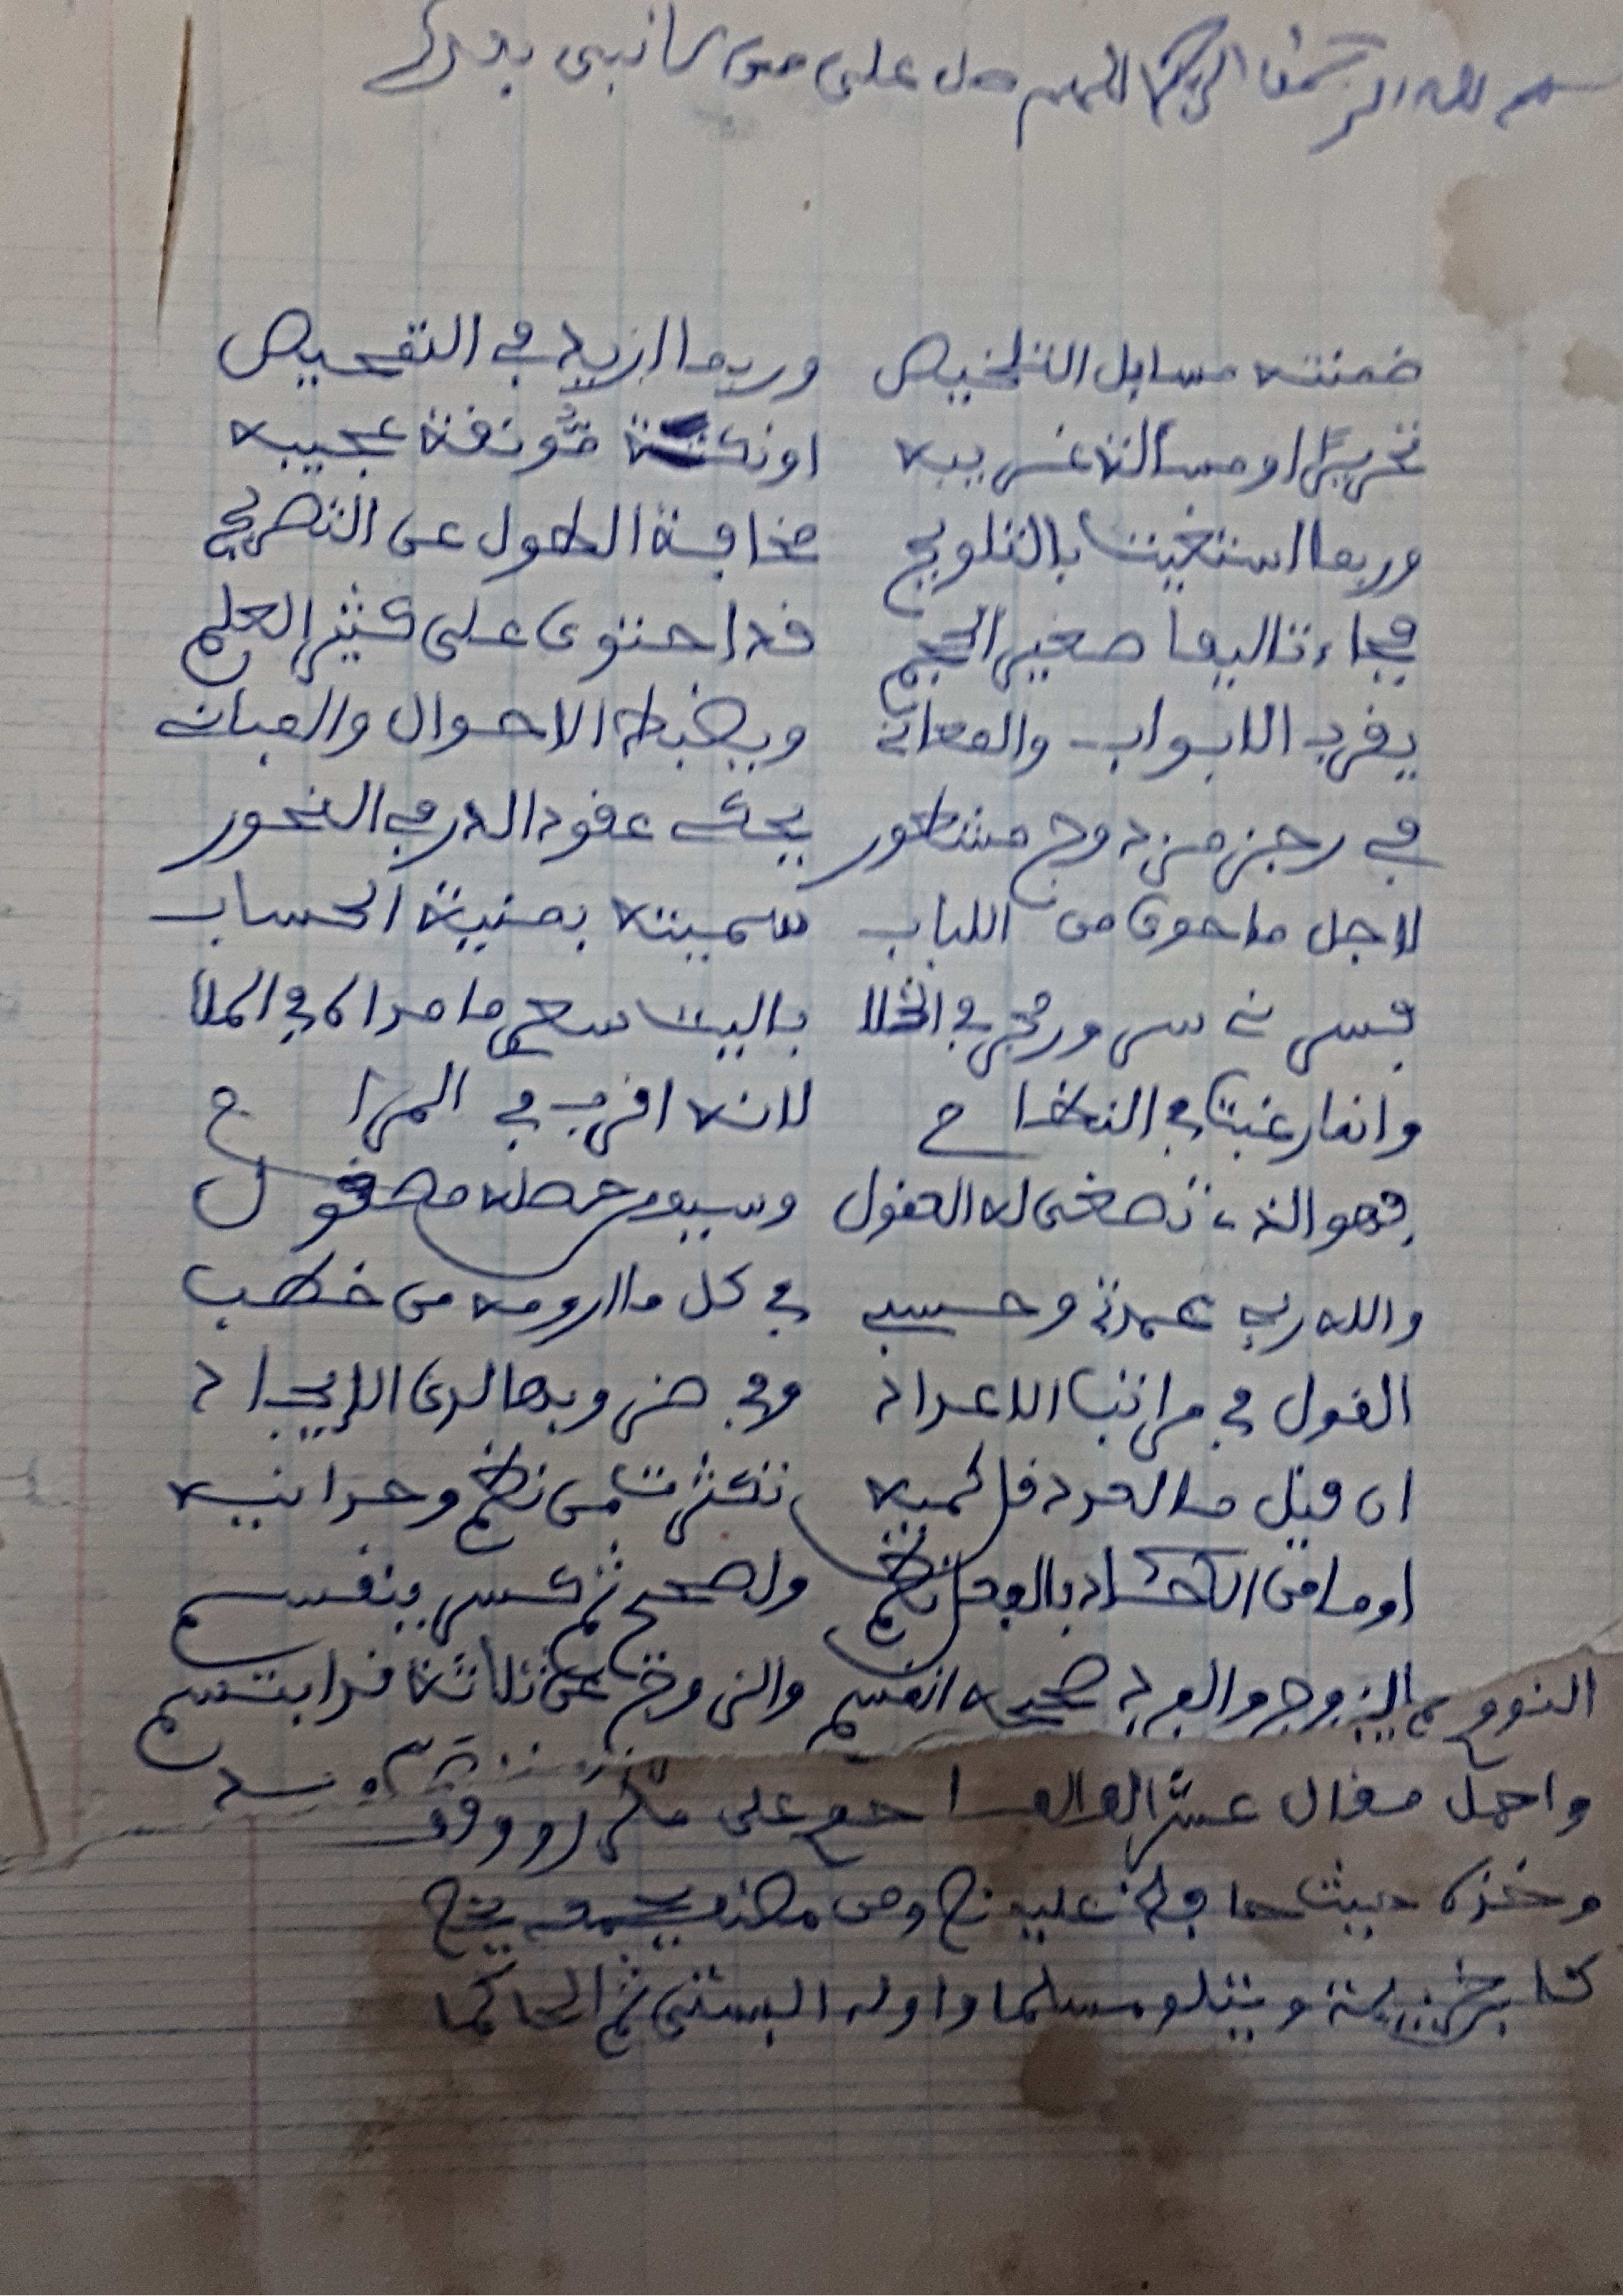 بسم الله الرحمن الرحيم اللهم صل على من لا نبي بعده
ضمنته مسايل التلخيص وربما ازيد في التمحيص
تحريرا او مسألة غريبه او نكتة مونفة عجيبه
وربما استغنيت بالتلويح مخافة الطول عن التصريح
فجاء تاليفا صغير الحجم قد احتوى على كثير العلم
يقرب الابواب والمعاني ويضبط الاحوال والمباني
في رجز مزدوج مشطور يحكي عقود الدر في النحور
لاجل ما حوى من اللباب سميته بمنية الحساب
فسرني سروره في الخلا ياليت سعى ما مداه في الملا
وانما رغبت في النظا م لانه اقرب في المرا م
فهو الذي تصغى له العقول وسيبه حصله معقو ل
والله ربي عمدتي وحسبي في كل ما ارومه من خطب
القول في مراتب الاعداد وفي ضروبها لدى الايجاد
ان قيل ما العدد قل كميه تكثرت من نظم وحدانيه
او ما من الآحاد بالعد انتظم ولصحيح ثم كسر ينقسم
النوع بالزوج والفرد صحيحه انقسم والزوج عن ثلاثة قد ابتسم
واحمل مقال عشر الفالف ا حمع على مكرر ووقف
وخذه حيث حافظ عليه نص ومن مصنف بجمعه يخص
كابن خزيمة ويتلو مسلما واوله البستي ثم الحاكما